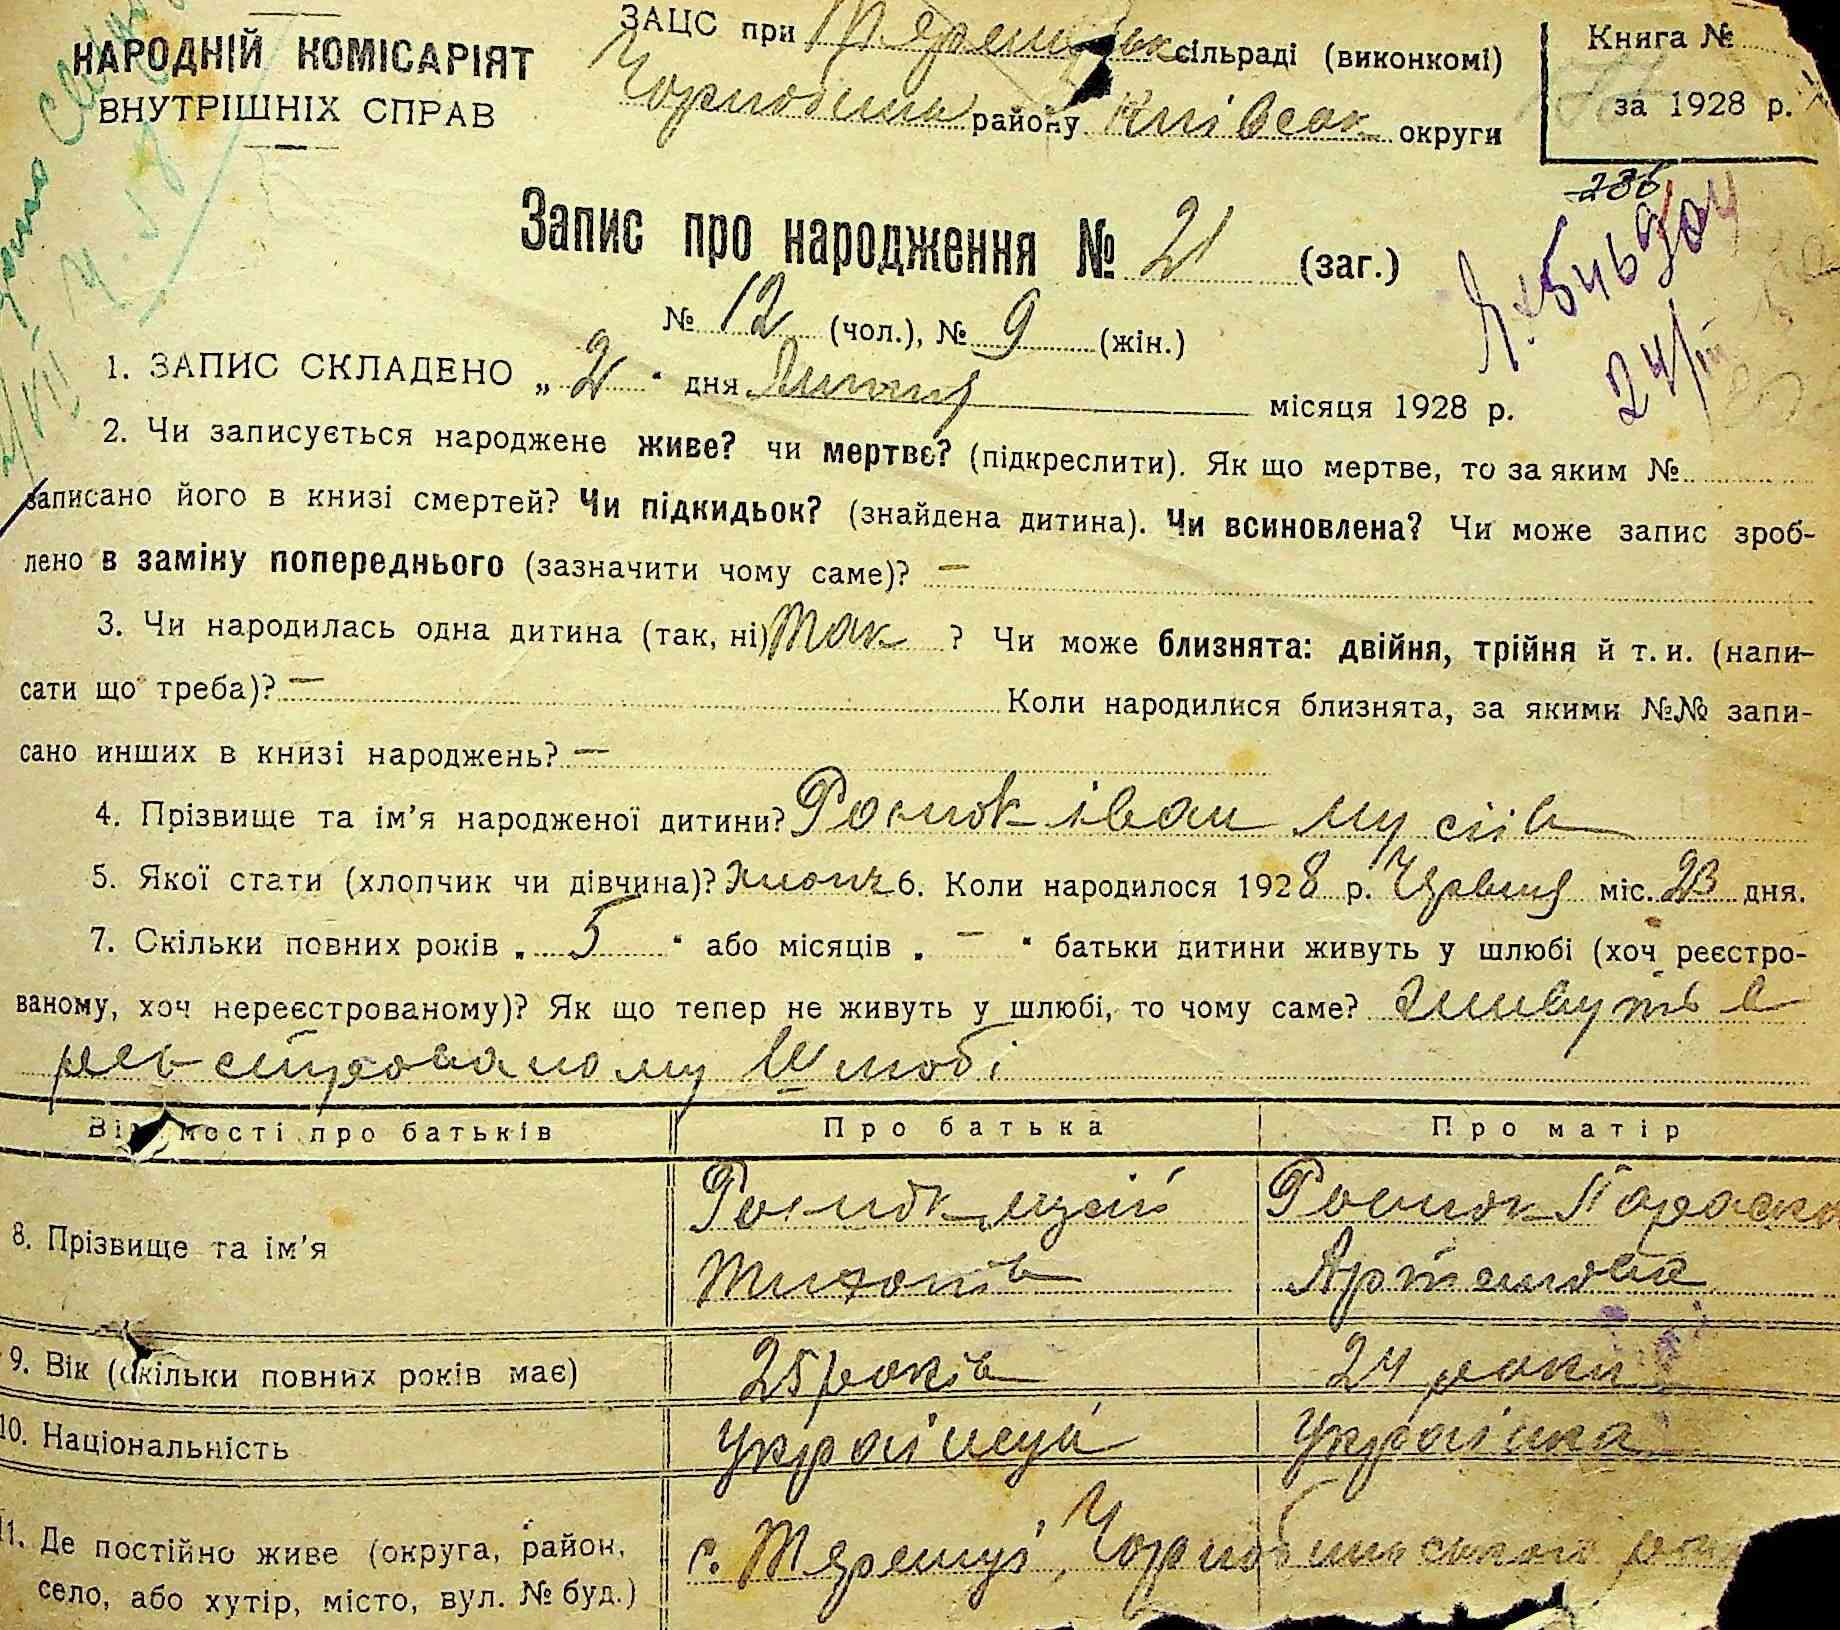 НАРОДНІЙ КОМІСАРІЯТ
ВНУТРІШНІХ СПРАВ
ЗАЦС при сільраді (виконкомі)
району Київськ округи
Книга №
за 1928 р.
236
Запис про народження № 21 (заг.)
№ 12 (чол.), № 9 (жін.)
24/III
1. ЗАПИС СКЛАДЕНО „ 2 “ дня Липня місяця 1928 р.
2. Чи записується народжене живе? чи мертвє? (підкреслити). Як що мертве, то за яким №
записано його в книзі смертей? Чи підкидьок? (знайдена дитина). Чи всиновлена? Чи може запис зроб-
лено в заміну попереднього (зазначити чому саме)? —
3. Чи народилась одна дитина (так, ні) Так ? Чи може близнята: двійня, трійня й т. и. (напи-
сати що треба)? — Коли народилися близнята, за якими №№ запи-
сано инших в книзі народжень? —
4. Прізвище та ім'я народженої дитини? Роснок іван мусіів
5. Якої стати (хлопчик чи дівчина)? Хлопч 6. Коли народилося 1928 р. Червня міс. 23 дня.
7. Скільки повних років „ 5 “ або місяців „ — “ батьки дитини живуть у шлюбі (хоч реєстро-
ваному, хоч нереєстрованому)? Як що тепер не живуть у шлюбі, то чому саме? живуть в
Шлюбі
Відомості про батьків Про батька Про матір
8. Прізвище та ім'я
Роснок мусій Роснок Параска
Тихонів Артемовна
9. Вік (скільки повних років має) 25 років 24 роки
10. Національність Українець Українка
11. Де постійно живе (округа, район,
село, або хутір, місто, вул. № буд.)
с. Теремці, Чорнобильського